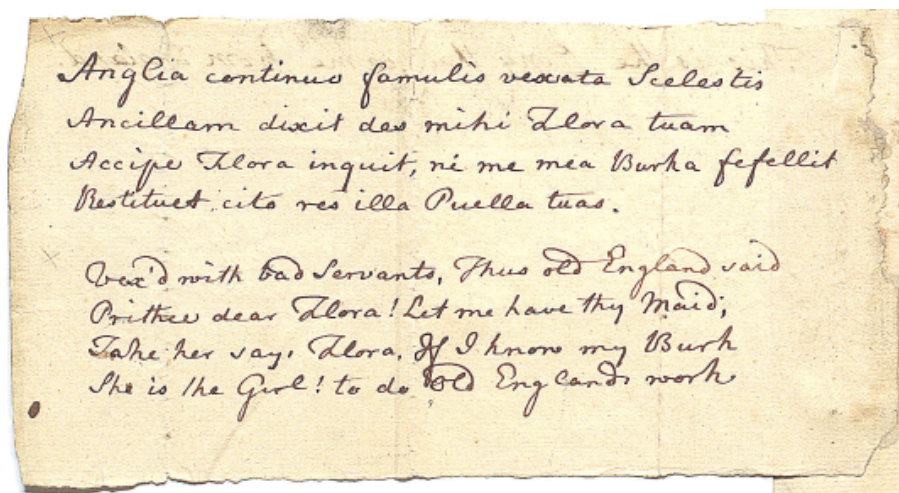 Anglia continuo famulis vexata Scelestis
Ancillam dixit des mihi Flora tuam
Accipe Flora inquit, ni me mea Burka fefellit
Restituet cito res illa Puella tuas.
Vex'd with bad Servants, Thus old England said
Prithee dear Flora! Let me have thy Maid;
Take her says Flora, If I know my Burk
She is the Girl! to do Old Englands work